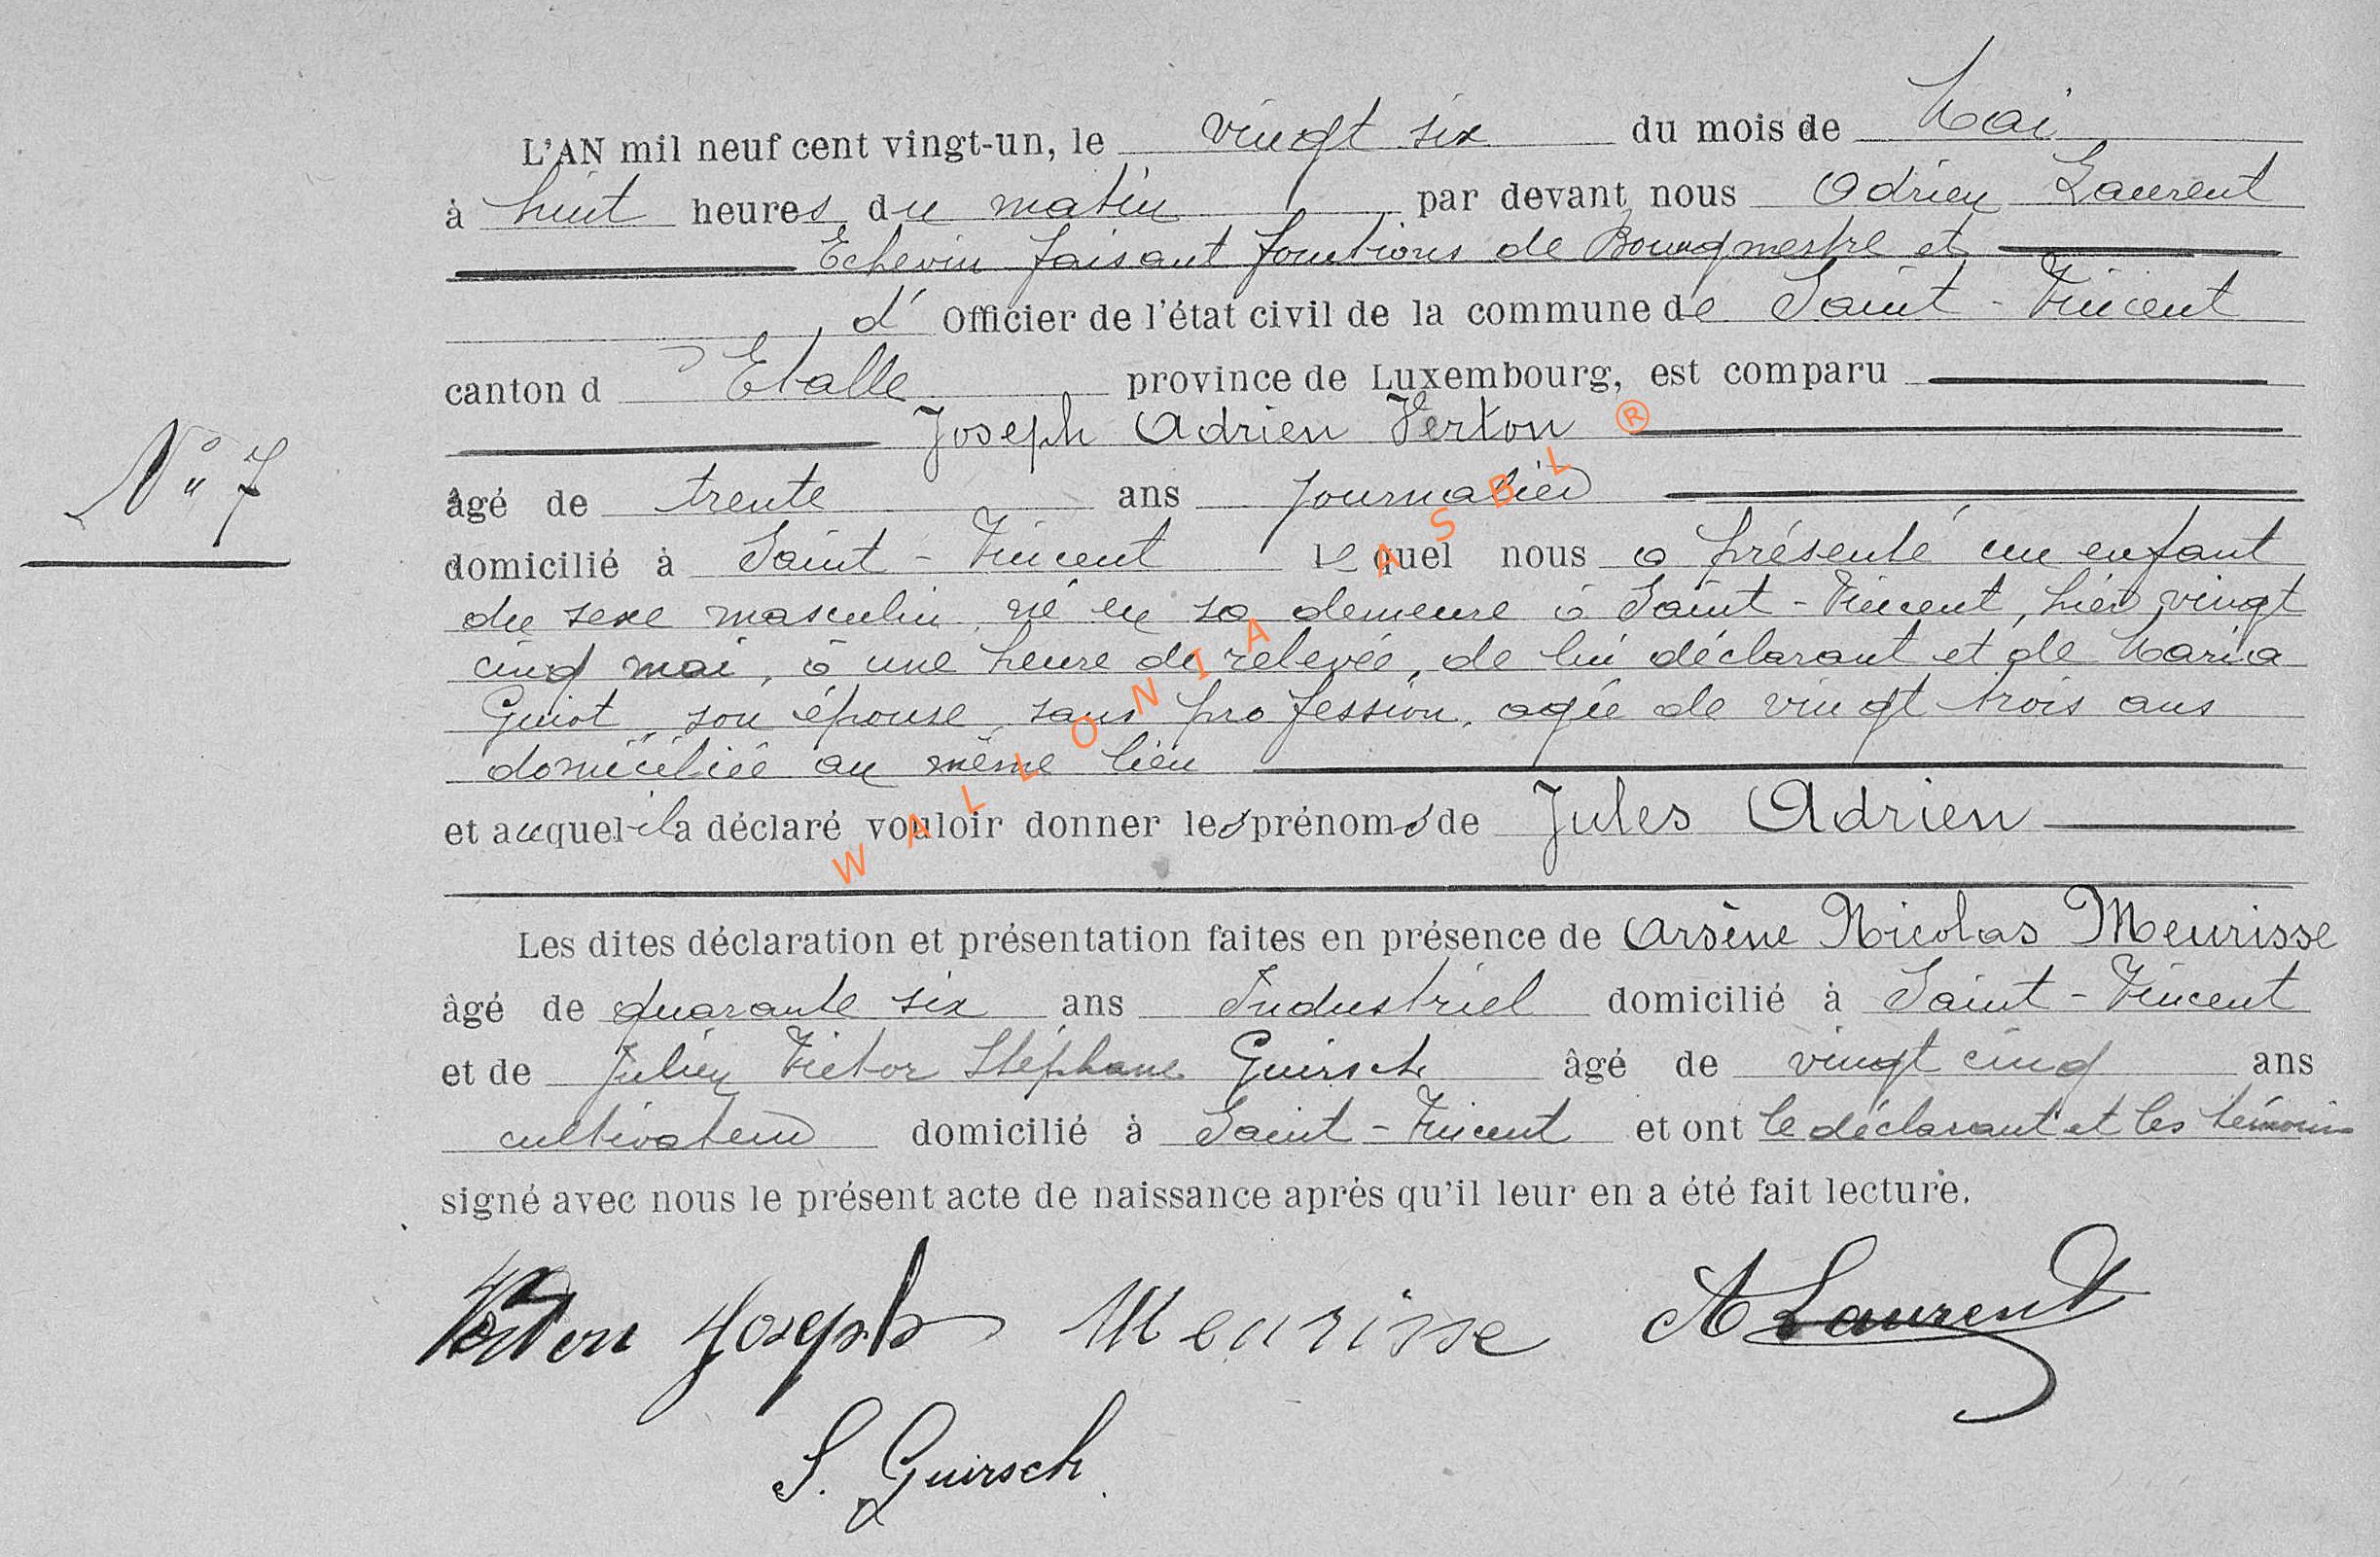 L'AN mil neuf cent vingt-un, le vingt six du mois de Mai
à huit heures du matin par devant nous Adrien Laurent
Echevin faisant fonctions de Bourgmestre et
d' Officier de l'état civil de la commune de Saint-Vincent
canton d'Etalle province de Luxembourg, est comparu
Joseph Adrien Verton ®
N° 7
âgé de trente ans journalier
domicilié à Saint-Vincent lequel nous a présenté un enfant
du sexe masculin, né en sa demeure à Saint-Vincent, hier vingt
cinq mai, à une heure de relevée, de lui déclarant et de Maria
Guiot, son épouse, sans profession, agée de vingt trois ans
domiciliée au même lieu
et auquel il a déclaré vouloir donner les prénoms de Jules Adrien
WALLONIA ASBL
Les dites déclaration et présentation faites en présence de Arsène Nicolas Meurisse
âgé de quarante six ans Industriel domicilié à Saint-Vincent
et de Julien Victor Stéphane Guirsch âgé de vingt cinq ans
cultivateur domicilié à Saint-Vincent et ont le déclarant et les témoins
signé avec nous le présent acte de naissance après qu'il leur en a été fait lecture.
Verton Joseph Meurisse A Laurent
S. Guirsch.